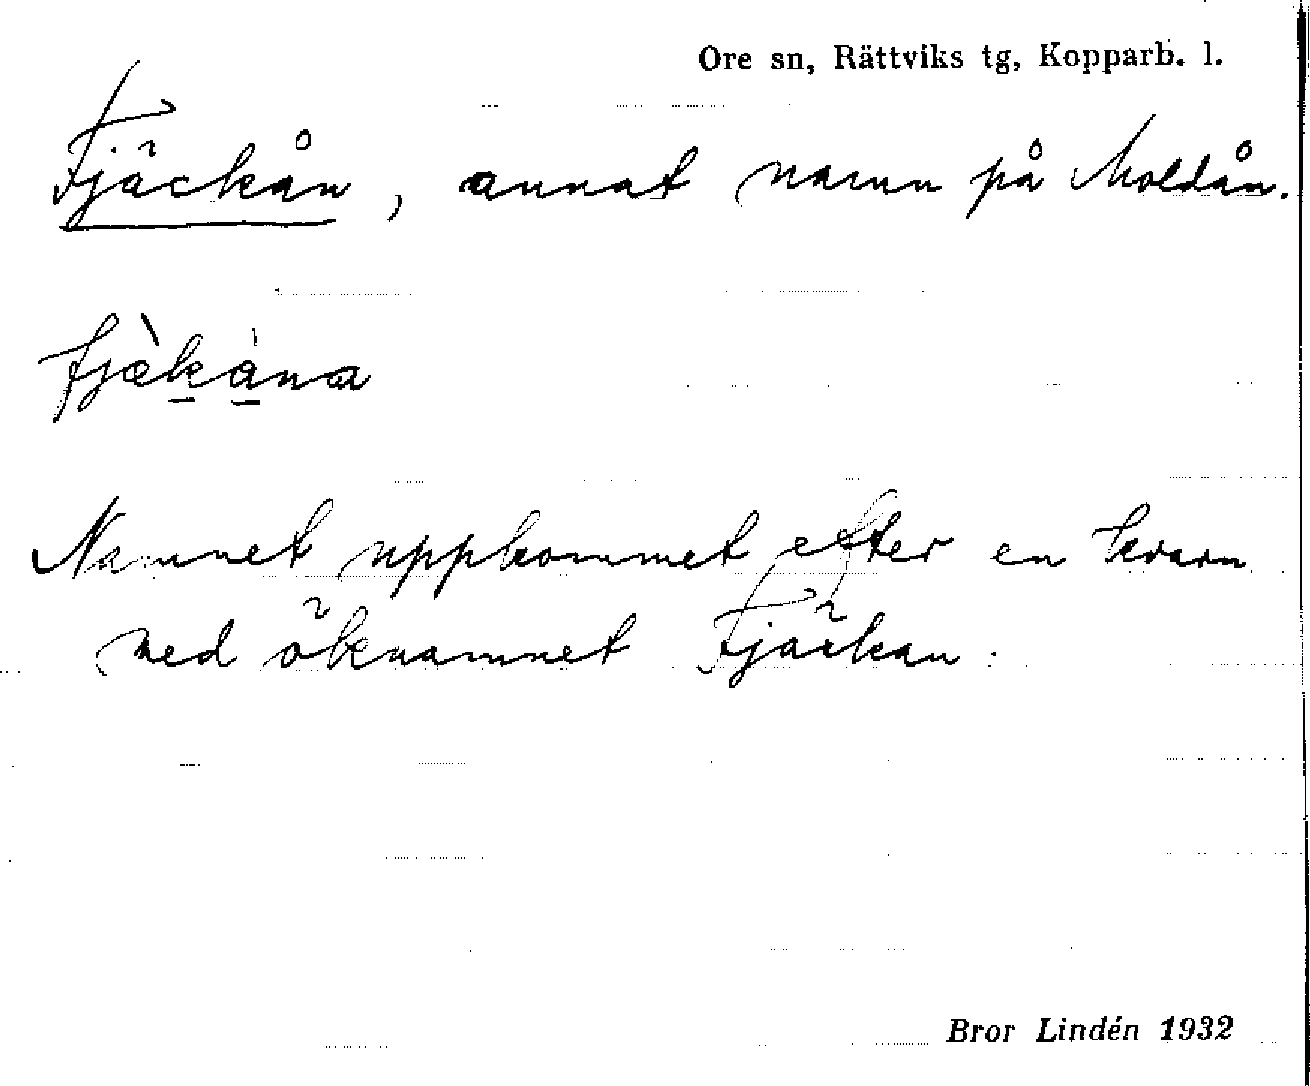 Ore sn, Rättviks tg, Kopparb. l.
Fjäckån, annat namn på Moldån.
fjæ̀kåna
Namnet uppkommet efter en kvarn
med öknamnet Fjäckan.
Bror Lindén 1932